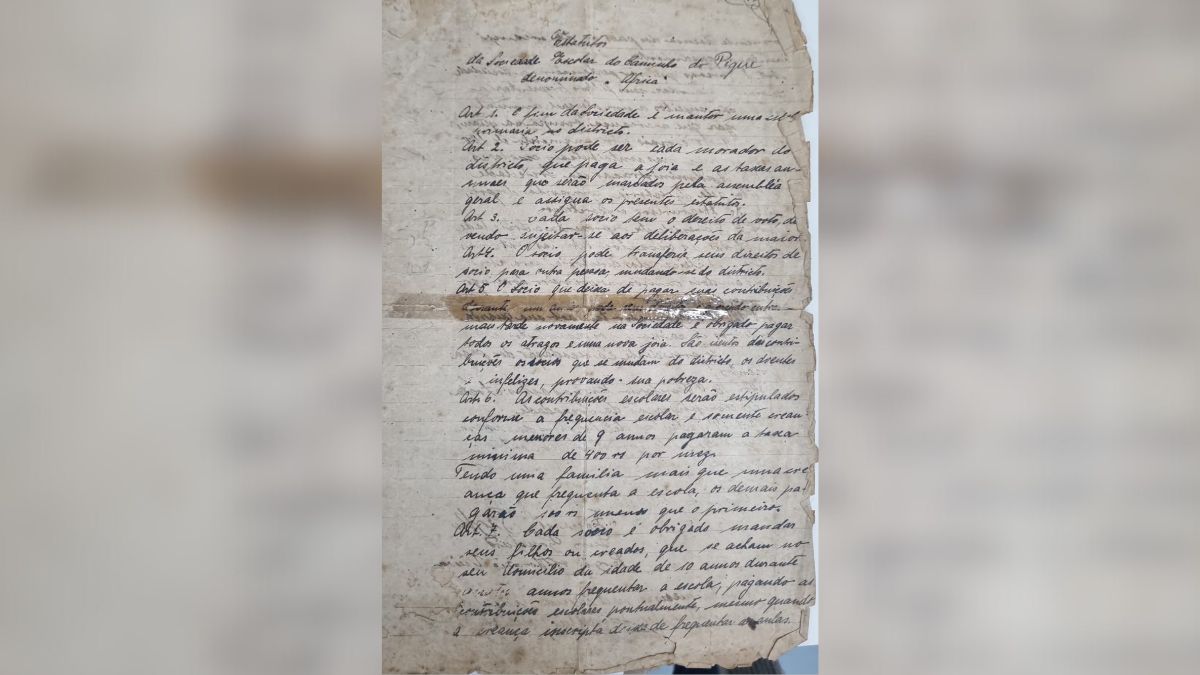 Estatutos
da Sociedade Escolar do Caminho do Pique
denominado "Africa"
Art 1. O fim da Sociedade é mantor uma
rimaria no districto.
Art 2. Socio pode ser cada morador do
districto, que paga a joia e as taxas an-
nuaes que serão marcados pela assembléa
geral e assigna os presentes estatutos.
Art 3. Cada socio tem o direito de voto, de
vendo sujeitar-se aos deliberações da maior.
Art 4. O socio pode transferir seus direitos de
socio para outra pessoa, mudando-se do districto.
Art 5 O Socio que deixa de pagar suas contribuições
durante um anno
mais tarde novamente na Sociedade é obrigado pagar
todos os atrazos e uma nova joia. São isentos das contri-
buicões os socios que se mudam do districto, os doentes
e infelizes, provando sua pobreza.
Art 6. As contribuições escolares serão estipulados
conforme a frequencia escolar e somente crean-
ças menores de 9 annos pagaram a taxa
minima de 400 rs por mez.
Tendo uma familia mais que uma cre
ança que frequenta a escola, os demais pa-
garão rs menos que o primeiro.
Art. 7. Cada socio é obrigado mandar
seus filhos ou creados, que se acham no
seu domicilio da idade de 10 annos durante
annos frequentar a escola; pagando as
contribuições escolares pontualmente, mesmo quando
a creança inscripta deixa de frequentar as aulas.